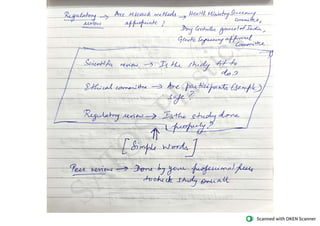 Regulatory review → Are research methods appropriate? → Health Ministry Screening Committee,
Drug Controller General of India,
Genetic Engineering Approval Committee
Scientific review → Is the study fit to do?
Ethical committee → Are participants (sample) safe?
Regulatory review → Is the study done properly?
[Simple Words]
Peer review → Done by your professional peers
to check study overall
Scanned with OKEN Scanner